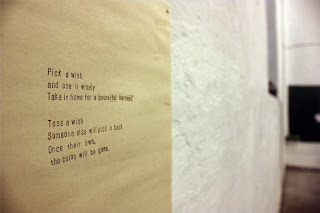 Pick a wish
and use it wisely
Take it home for a bountiful harvest.
Toss a wish
Someone else will pick it back
Once their own,
the coins will be gone.